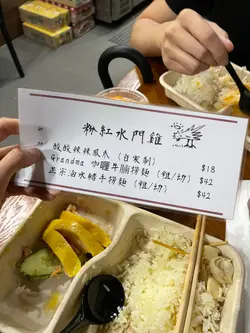 粉紅水門雞
酸酸辣辣鳳爪 (自家制) $18
Grandma 咖喱牛腩撈麵 (粗/幼) $42
正宗油水蟶子撈麵 (粗/幼) $42